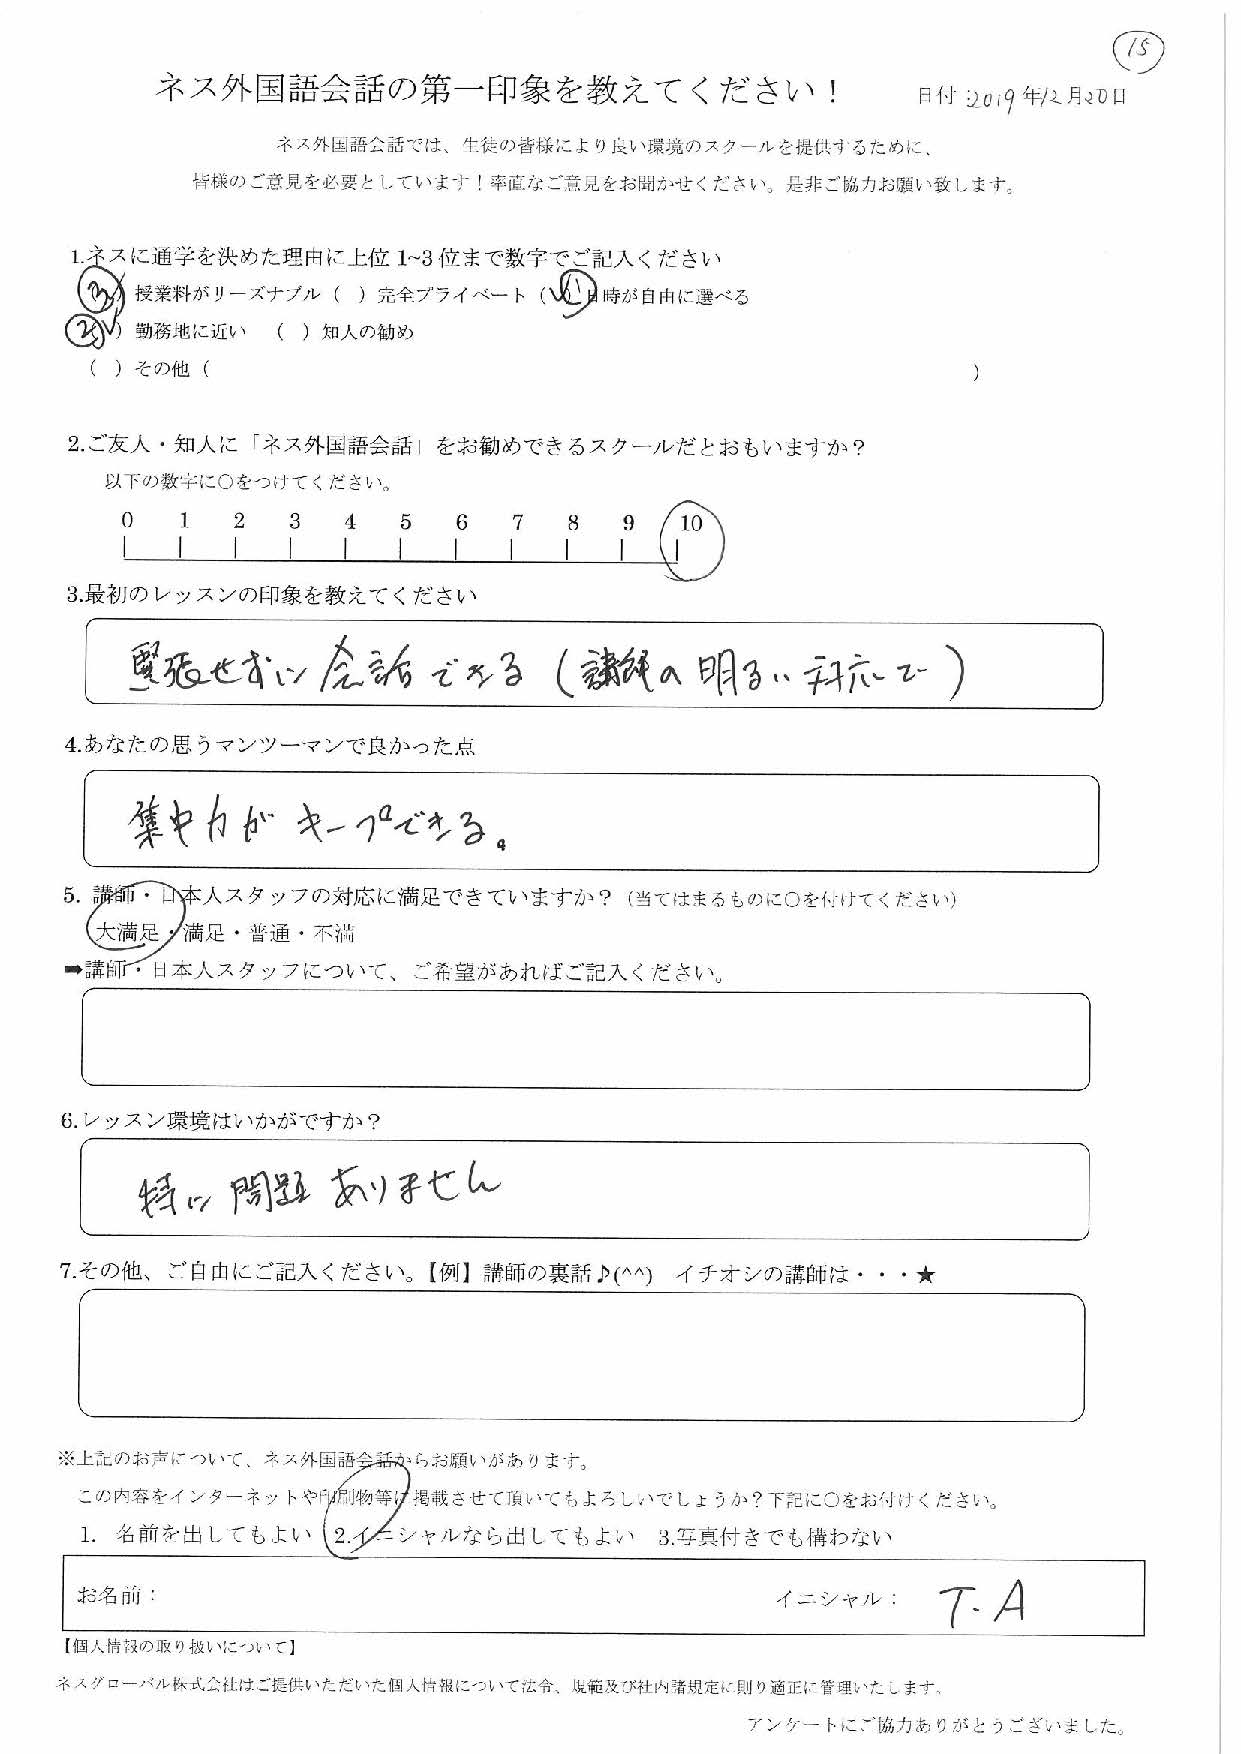 15
ネス外国語会話の第一印象を教えてください！
日付：2019年12月20日
ネス外国語会話では、生徒の皆様により良い環境のスクールを提供するために、
皆様のご意見を必要としています！率直なご意見をお聞かせください。是非ご協力お願い致します。
1.ネスに通学を決めた理由に上位 1~3 位まで数字でご記入ください
（3）授業料がリーズナブル（ ）完全プライベート（1）日時が自由に選べる
（2）勤務地に近い （ ）知人の勧め
（ ）その他（ ）
2.ご友人・知人に「ネス外国語会話」をお勧めできるスクールだとおもいますか？
以下の数字に〇をつけてください。
0 1 2 3 4 5 6 7 8 9 10
3.最初のレッスンの印象を教えてください
緊張せずに会話できる（講師の明るい対応で）
4.あなたの思うマンツーマンで良かった点
集中力がキープできる。
5. 講師・日本人スタッフの対応に満足できていますか？（当てはまるものに〇を付けてください）
大満足・満足・普通・不満
➡講師・日本人スタッフについて、ご希望があればご記入ください。
6.レッスン環境はいかがですか？
特に問題ありません
7.その他、ご自由にご記入ください。【例】講師の裏話♪(^^)　イチオシの講師は・・・★
※上記のお声について、ネス外国語会話からお願いがあります。
この内容をインターネットや印刷物等に掲載させて頂いてもよろしいでしょうか？下記に〇をお付けください。
1. 名前を出してもよい 2.イニシャルなら出してもよい 3.写真付きでも構わない
お名前： イニシャル： T.A
【個人情報の取り扱いについて】
ネスグローバル株式会社はご提供いただいた個人情報について法令、規範及び社内諸規定に則り適正に管理いたします。
アンケートにご協力ありがとうございました。